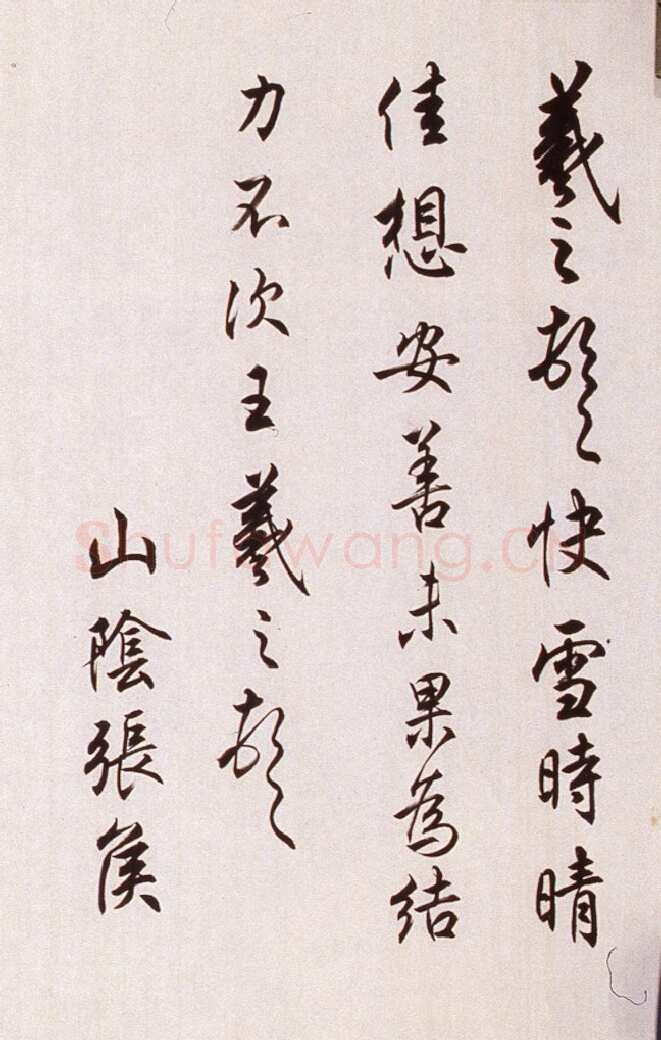 羲之頓首快雪時晴
佳想安善未果為結
力不次王羲之頓首
山陰張侯
Shufawang.cn